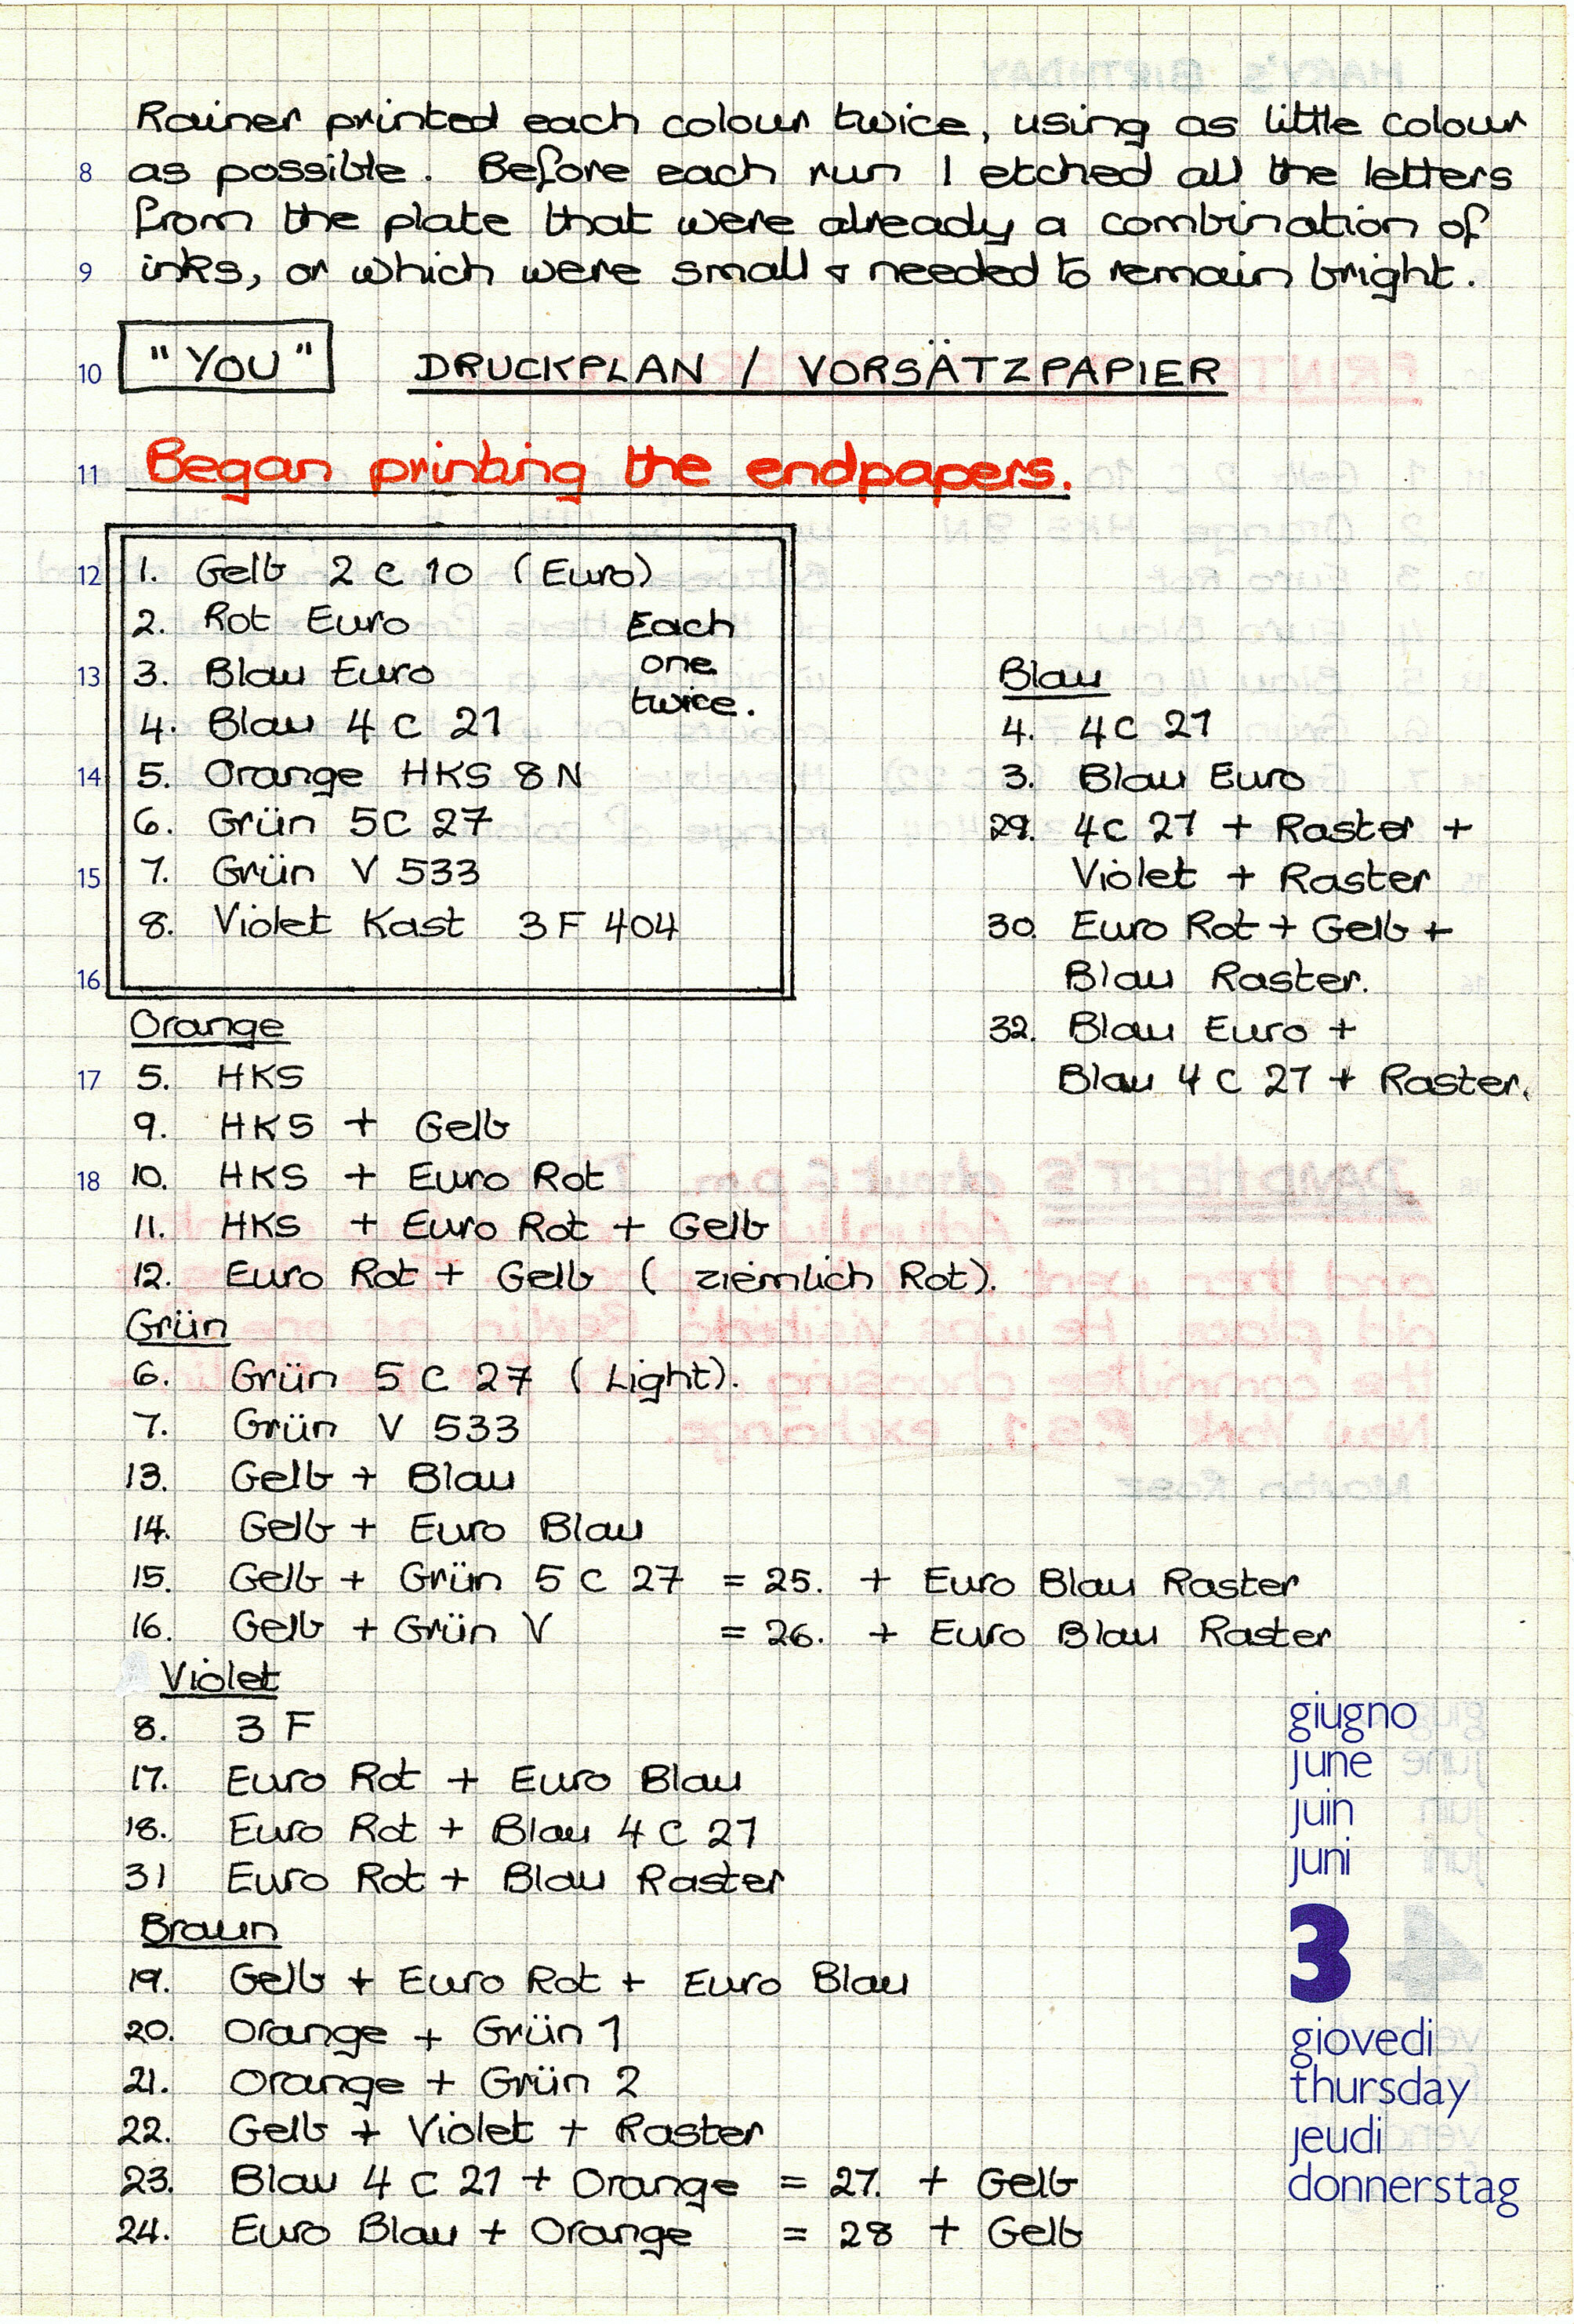 Rainer printed each colour twice, using as little colour
8 as possible. Before each run I etched all the letters
from the plate that were already a combination of
9 inks, or which were small + needed to remain bright.
10 "YOU" DRUCKPLAN / VORSÄTZPAPIER
11 Began printing the endpapers.
12 1. Gelb 2 C 10 (Euro)
2. Rot Euro
Each
one
twice.
13 3. Blau Euro
4. Blau 4 C 21
14 5. Orange HKS 8 N
6. Grün 5C 27
15 7. Grün V 533
8. Violet Kast 3 F 404
16
Blau
4. 4C 21
3. Blau Euro
29. 4C 21 + Raster +
Violet + Raster
30. Euro Rot + Gelb +
Blau Raster.
32. Blau Euro +
Blau 4 C 21 + Raster.
Orange
17 5. HKS
9. HKS + Gelb
18 10. HKS + Euro Rot
11. HKS + Euro Rot + Gelb
12. Euro Rot + Gelb ( ziemlich Rot).
Grün
6. Grün 5 C 27 (Light).
7. Grün V 533
13. Gelb + Blau
14. Gelb + Euro Blau
15. Gelb + Grün 5 C 27 = 25. + Euro Blau Raster
16. Gelb + Grün V = 26. + Euro Blau Raster
Violet
8. 3 F
17. Euro Rot + Euro Blau
18. Euro Rot + Blau 4 C 21
31 Euro Rot + Blau Raster
Braun
19. Gelb + Euro Rot + Euro Blau
20. Orange + Grün 1
21. Orange + Grün 2
22. Gelb + Violet + Raster
23. Blau 4 C 21 + Orange = 27. + Gelb
24. Euro Blau + Orange = 28 + Gelb
giugno
june
juin
juni
3
giovedi
thursday
jeudi
donnerstag